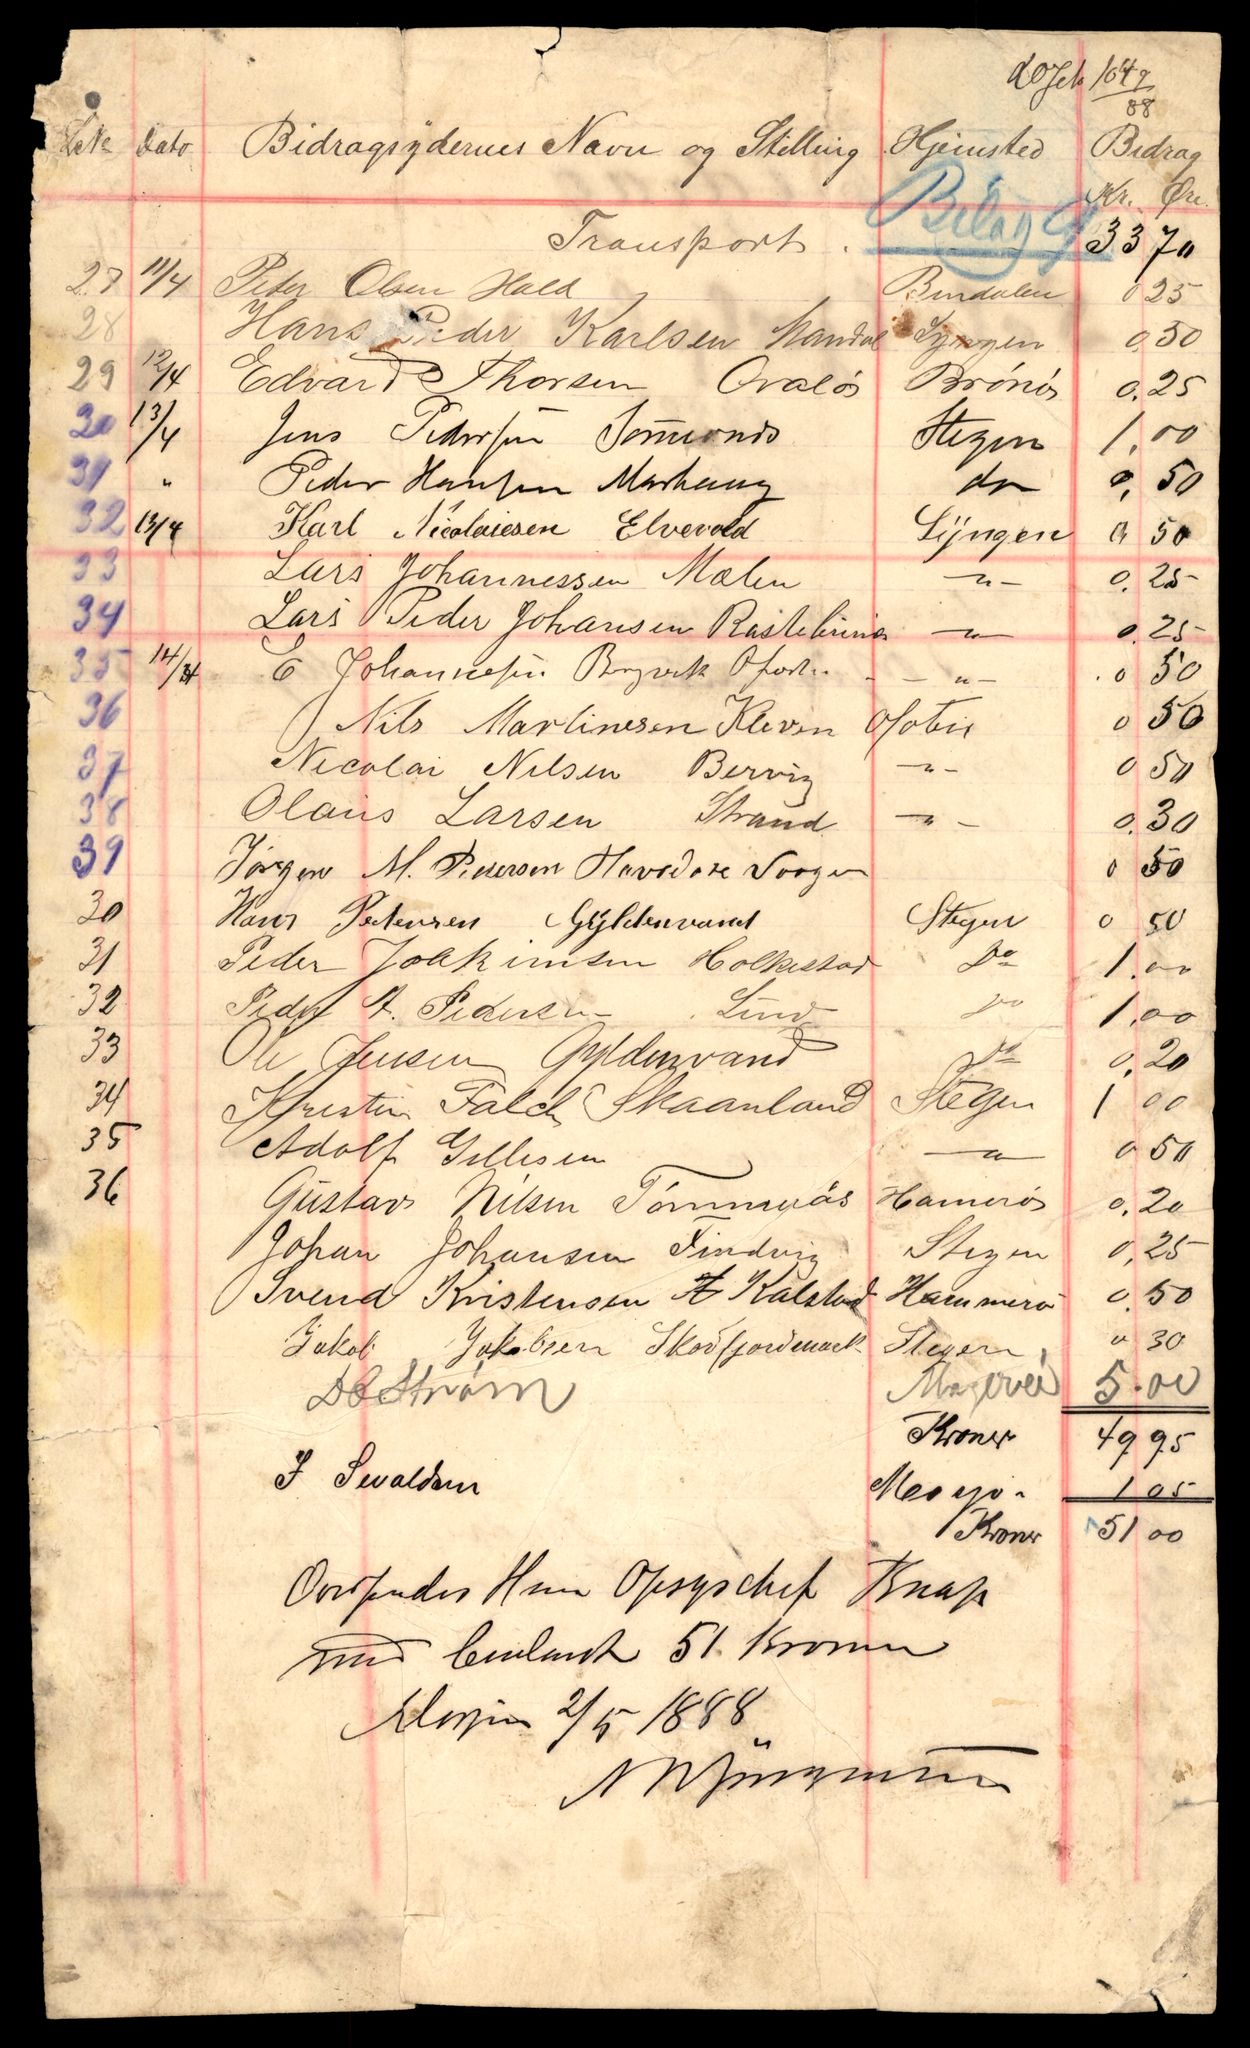 1049/88
Dato Bidragsydernes Navn og Stilling Hjemsted Bidrag
Kr. Øre.
Bilag
Transport . 33 70
27 11/4 Peder Olsen Hald Bindalen 0 25
28 Hans Peder Karlsen Mandal Lyngen 0.30
29 12/4 Edvard Thorsen Brönös 0.25
30 13/4 Jens Pedersen Stegen 1.00
31 " Peder Hansen do 0,50
32 13/4 Karl Nicolaiesen Elvevold Lÿngen 0 50
33 Lars Johannessen Mælen -"- 0.25
34 Lars Peder Johansen -"- 0.25
35 14/4 E Johannesen - -"- 0 50
36 Nils Martinesen Kleven Ofoten 0 50
37 Nicolai Nilsen Bervig -"- 0 50
38 Olaus Larsen Strand -"- 0.30
39 Jörgen M. Pedersen 0 50
30 Hans Petersen Gÿldenvand Stegen 0 50
31 Peder Joakimsen Holkestad Do 1.00
32 Peder A. Pedersen Lund Do 1.00
33 Ole Jensen Gyldenvand Do 0,20
34 Kristen Falch Skaanland Stegen 1 00
35 Adolf Gillesen -"- 0 50
36 Gustav Nilsen Tömmernäs Hamerös 0.20
Johan Johansen Findvig Stegen 0,25
Svend Kristensen Kalstad Hammerö 0.50
Jakob Jakobsen Skodfjordmark Stegen 0 30
Ström 5.00
Kroner 49 95
J Sevaldsen 1 05
Kroner 51 00
Oversendes Herr Opsynschef Knap
med 51 Kroner
2/5 1888